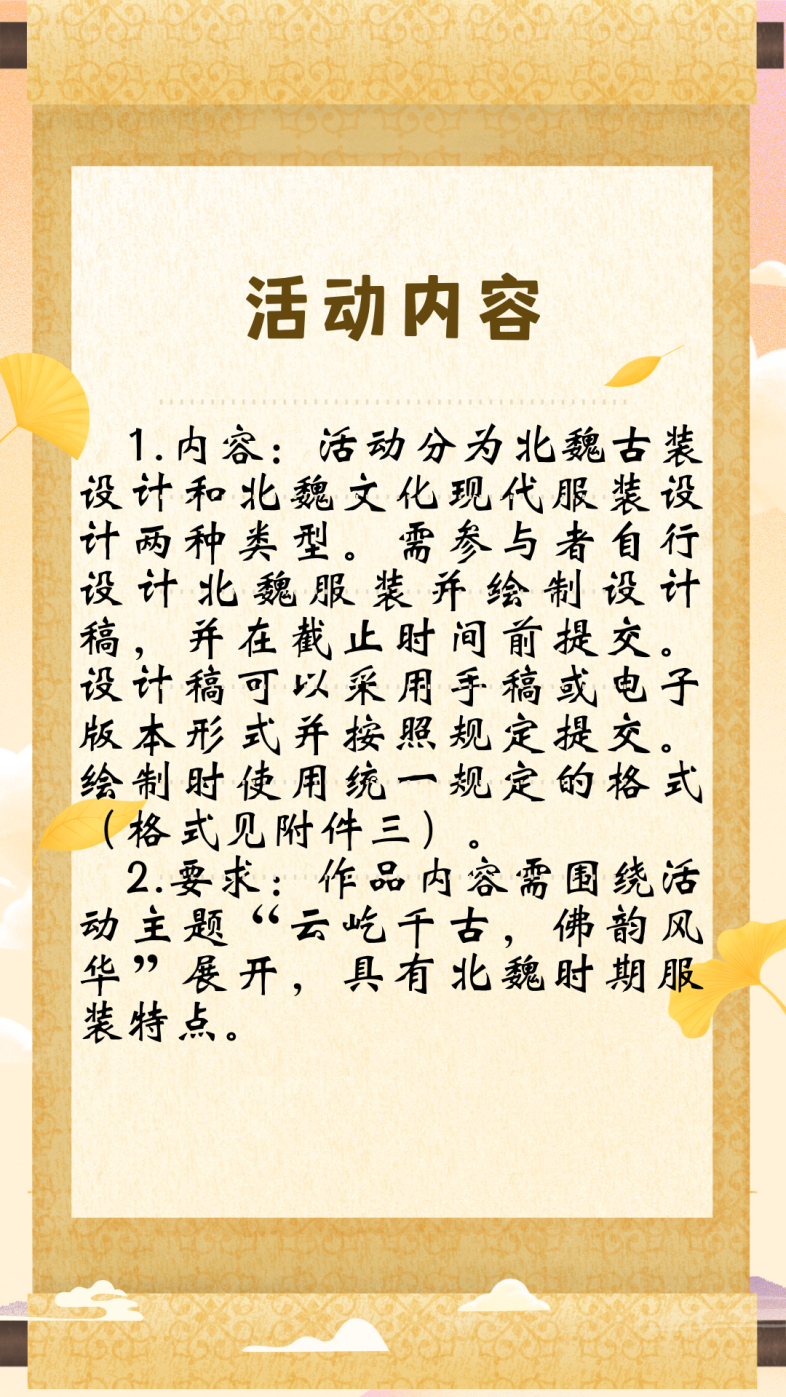 活动内容
1.内容：活动分为北魏古装
设计和北魏文化现代服装设
计两种类型。需参与者自行
设计北魏服装并绘制设计
稿，并在截止时间前提交。
设计稿可以采用手稿或电子
版本形式并按照规定提交。
绘制时使用统一规定的格式
（格式见附件三）。
2.要求：作品内容需围绕活
动主题“云屹千古，佛韵风
华”展开，具有北魏时期服
装特点。